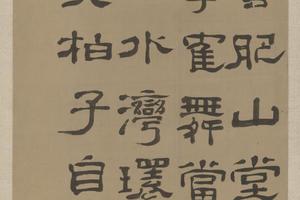 肥山堂
寉舞當
水灣環
柏子自